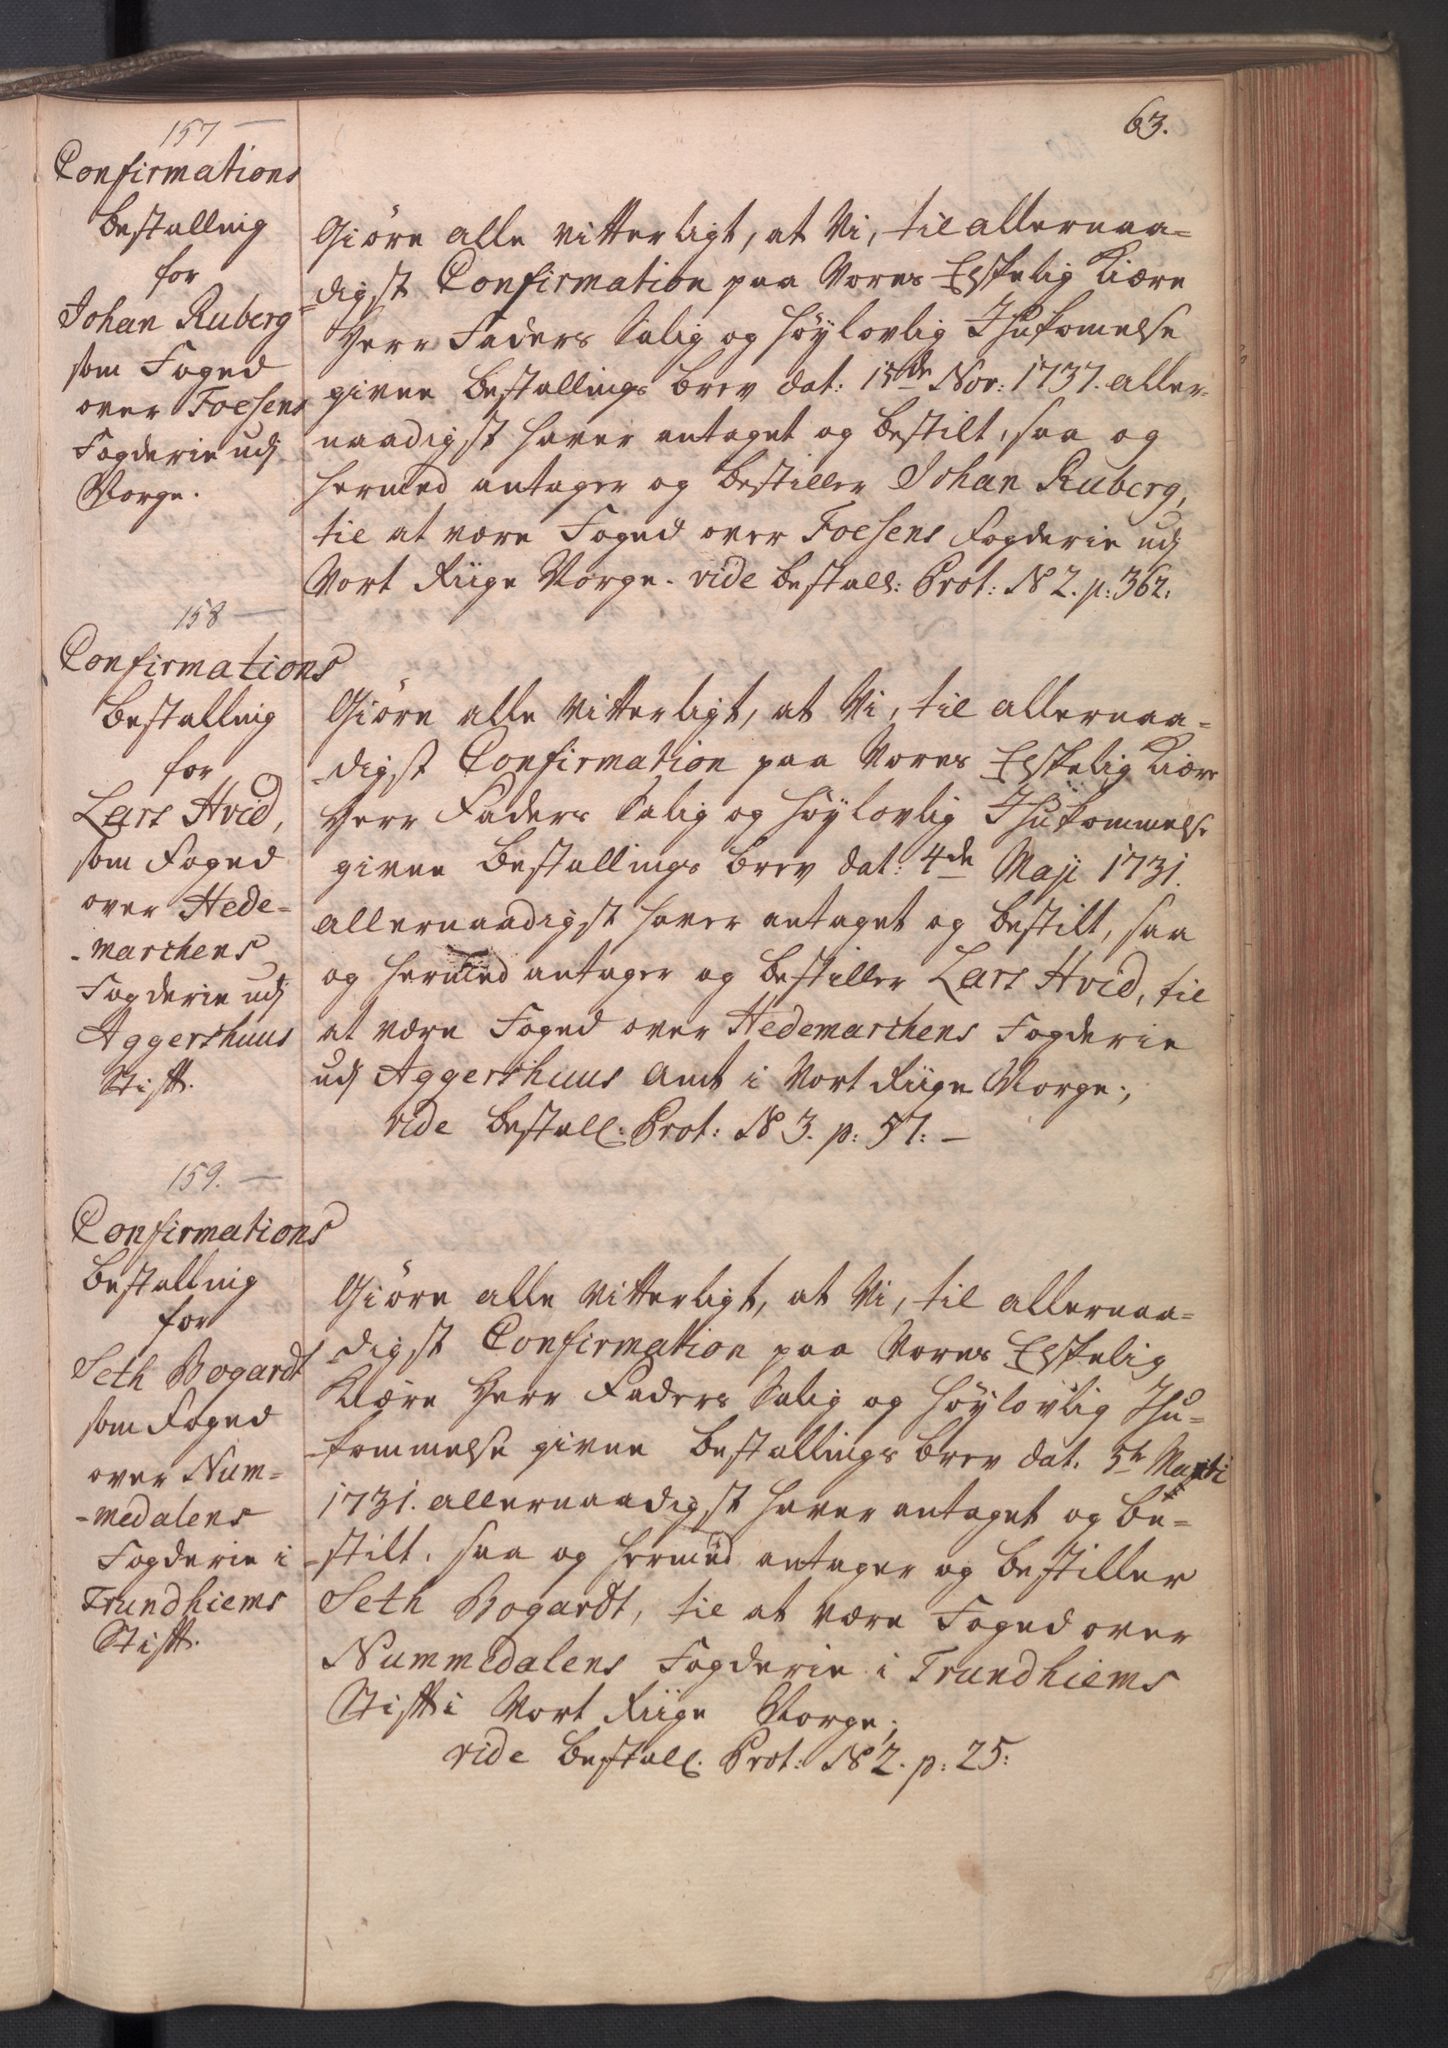 63.
157
Confirmations
Bestalling
for
Johan Ruberg
som Foged
over Foesens
Fogderie udj
Norge.
Giöre alle vitterligt, at Vi, til allernaa=
=digst Confirmation paa Vores Elskelig Kiære
Herr Faders Salig og Höylovlig Ihukomelse
givne Bestallings Brev dat: 15de Nov: 1737. aller-
naadigst haver antaget og bestilt, saa og
hermed antager og bestiller Johan Ruberg,
til at være Foged over Foesens Fogderie udj
Vort Riige Norge. vide Bestall: Prot: No 2. p: 362:
158
Confirmations
Bestalling
for
Lars Hvid,
som Foged
over Hede-
-marchens
Fogderie udj
Aggershuus
Stift.
Giöre alle Vitterligt, at Vi, til allernaa=
-digst Confirmation paa Vores Elskelig Kiære
Herr Faders Salig og Höylovlig Ihukommelse
givne Bestallings Brev dat: 4de Maji 1731.
allernaadigst haver antaget og bestilt, saa
og hermed antager og bestiller Lars Hvid, til
at være Foged over Hedemarchens Fogderie
udj Aggershuus Amt i Vort Riige Norge;
vide Bestall: Prot: No 3. p: 57: -
159.
Confirmations
Bestalling
for
Seth Bogardt
som Foged
over Num=
-medalens
Fogderie i
Trundhiems
Stift.
Giöre alle Vitterligt, at Vi, til allernaa=
-digst Confirmation paa Vores Elskelig
Kiære Herr Faders Salig og Höylovlig Ihu=
-kommelse givne Bestallings Brev dat. 5te Martii
1731. allernaadigst haver antaget og be=
-stilt, saa og hermed antager og bestiller
Seth Bogardt, til at være Foged over
Nummedalens Fogderie i Trundhiems
Stift i Vort Riige Norge;
vide Bestall. Prot: No 2. p: 25: